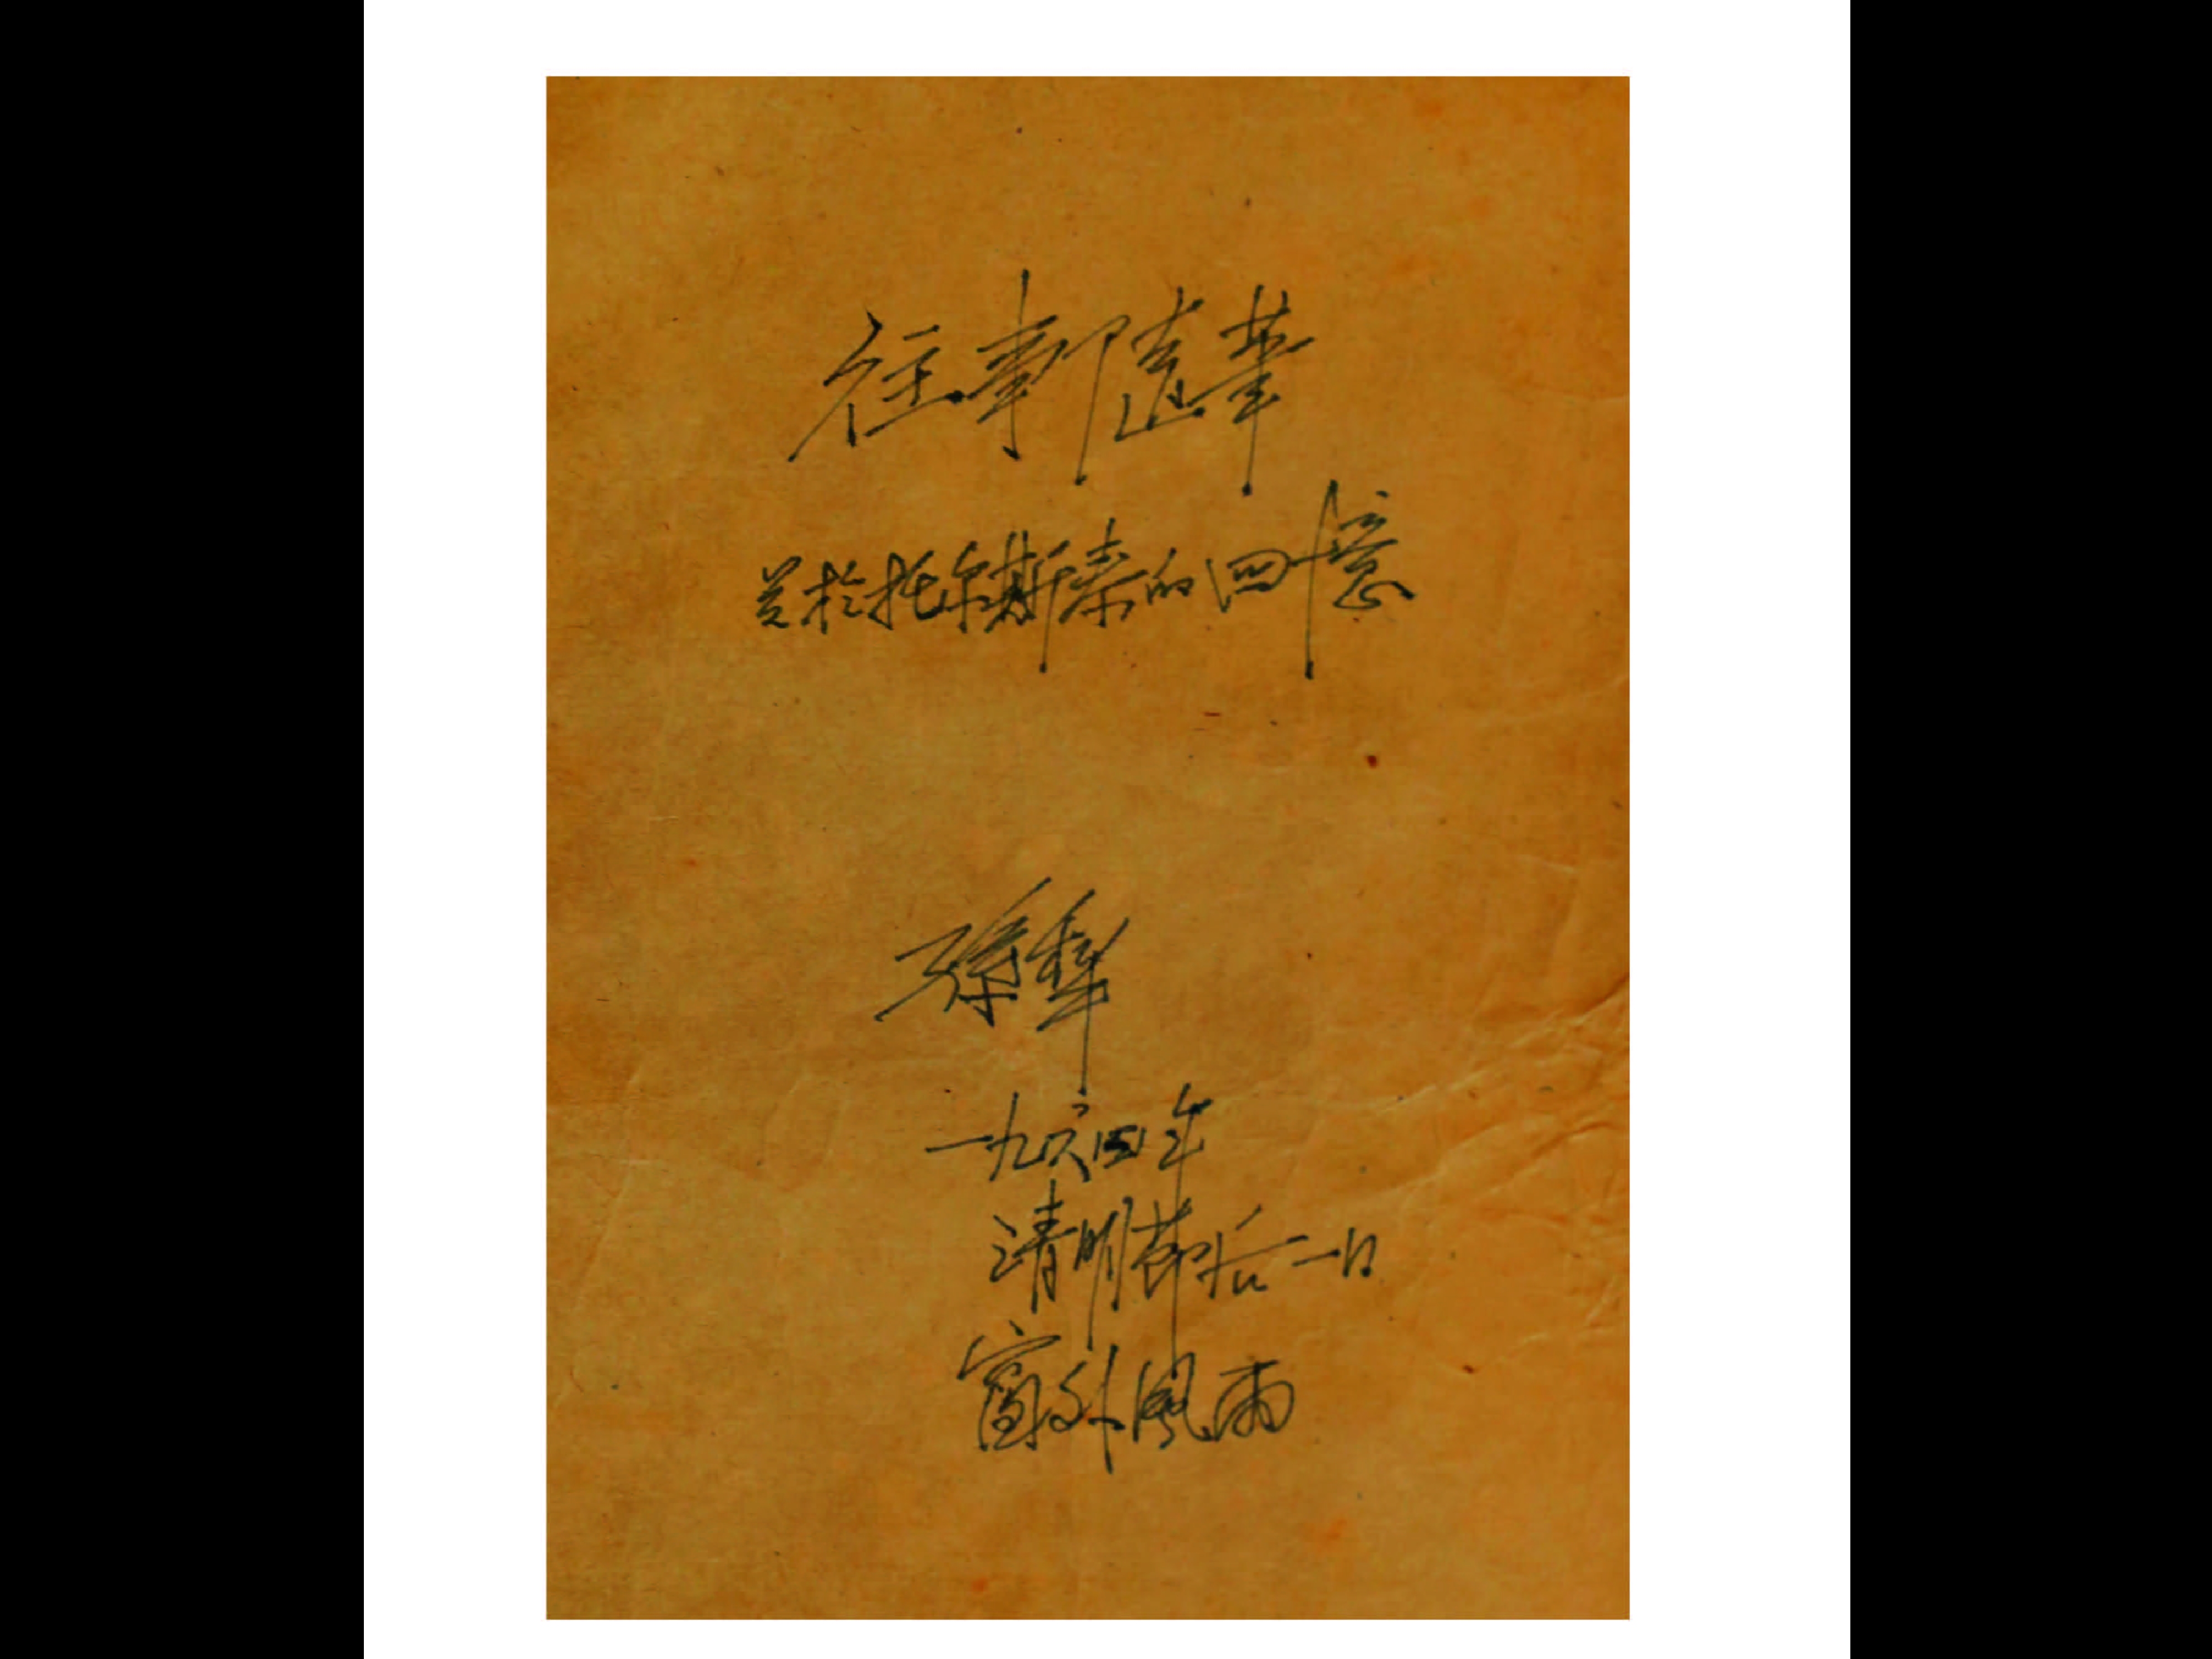 往事随筆
关於托尔斯泰的回憶
孫犁
一九六四年
清明節后一日
窗外風雨